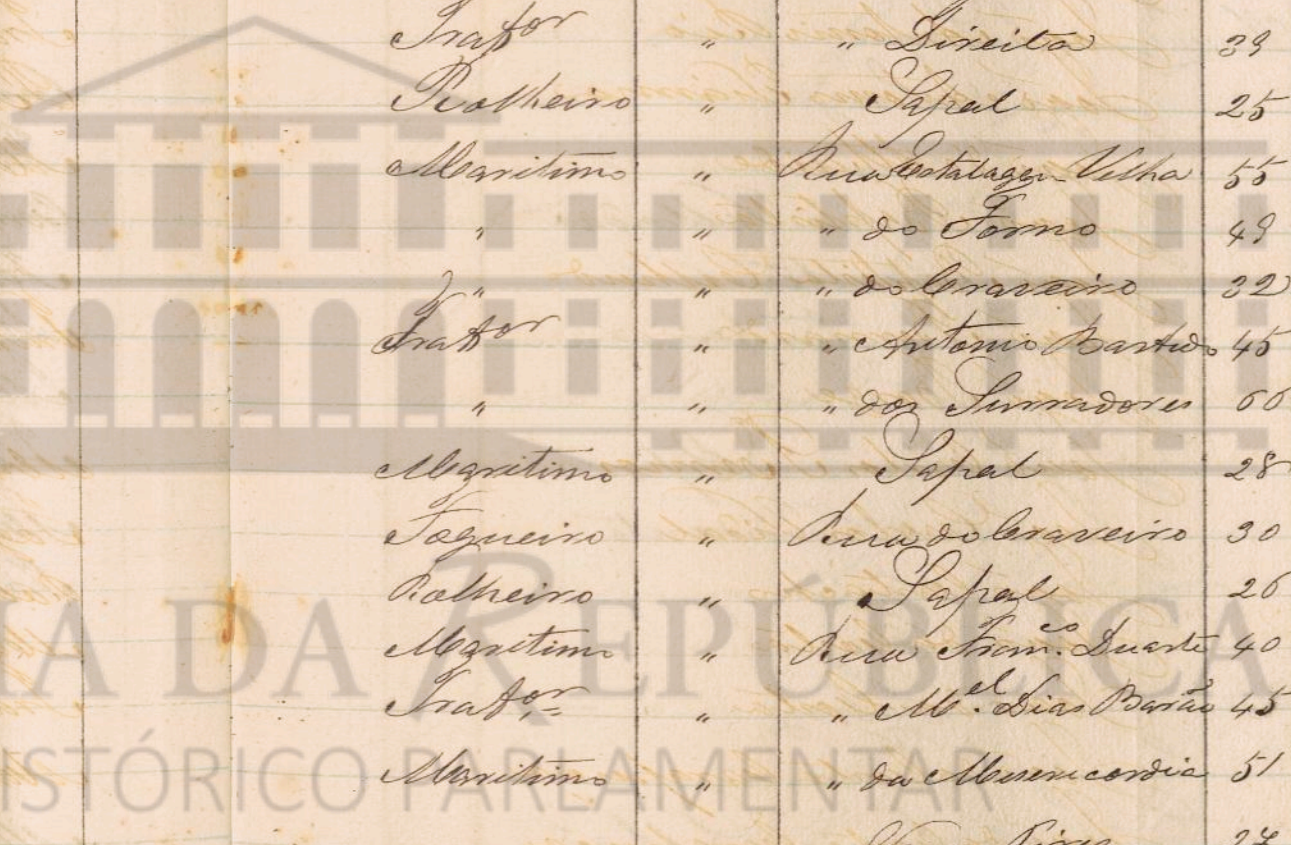 Trab.or " " Direita 39
Rolheiro " Sapal 25
Maritimo " Rua Estalagem Velha 55
" " " do Forno 49
" " " do Craveiro 32
Trab.or " " Antonio 45
" " " dos Surradores 60
Maritimo " Sapal 28
Fogueiro " Rua do Craveiro 30
Rolheiro " Sapal 26
Maritimo " Rua Fran.co Duarte 40
Trab.or " " M.el Dias Barão 45
Maritimo " " da Misericordia 51
27
IA DA REPÚBLICA
ISTÓRICO PARLAMENTAR